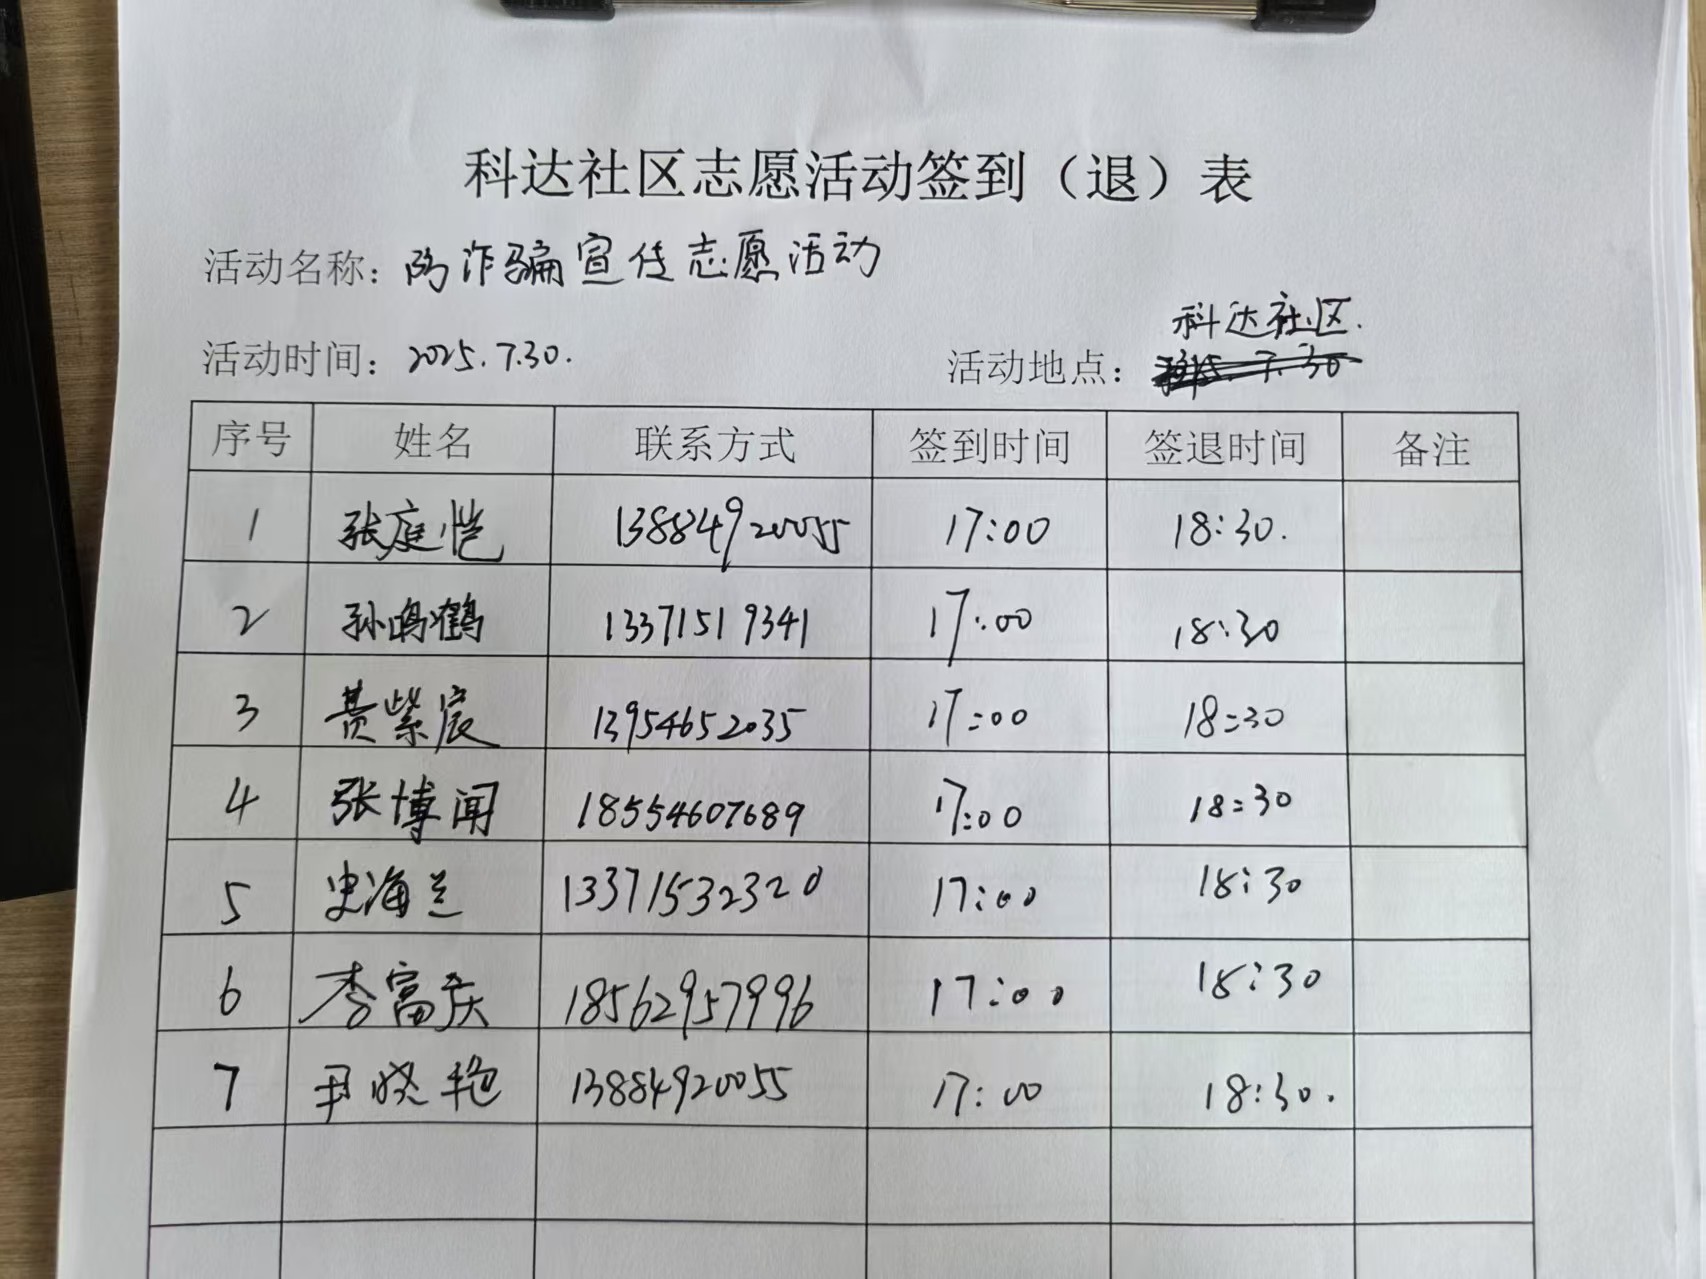 科达社区志愿活动签到（退）表
活动名称：防诈骗宣传志愿活动
科达社区.
活动时间：2025.7.30. 活动地点：
序号 姓名 联系方式 签到时间 签退时间 备注
1 张庭恺 13884920055 17:00 18:30.
2 孙鸣鹤 13371519341 17:00 18:30
3 黄紫宸 13954652035 17:00 18:30
4 张博闻 18554607689 17:00 18:30
5 史海兰 13371532320 17:00 18:30
6 李富庆 18562957996 17:00 18:30
7 尹晓艳 13884920055 17:00 18:30.